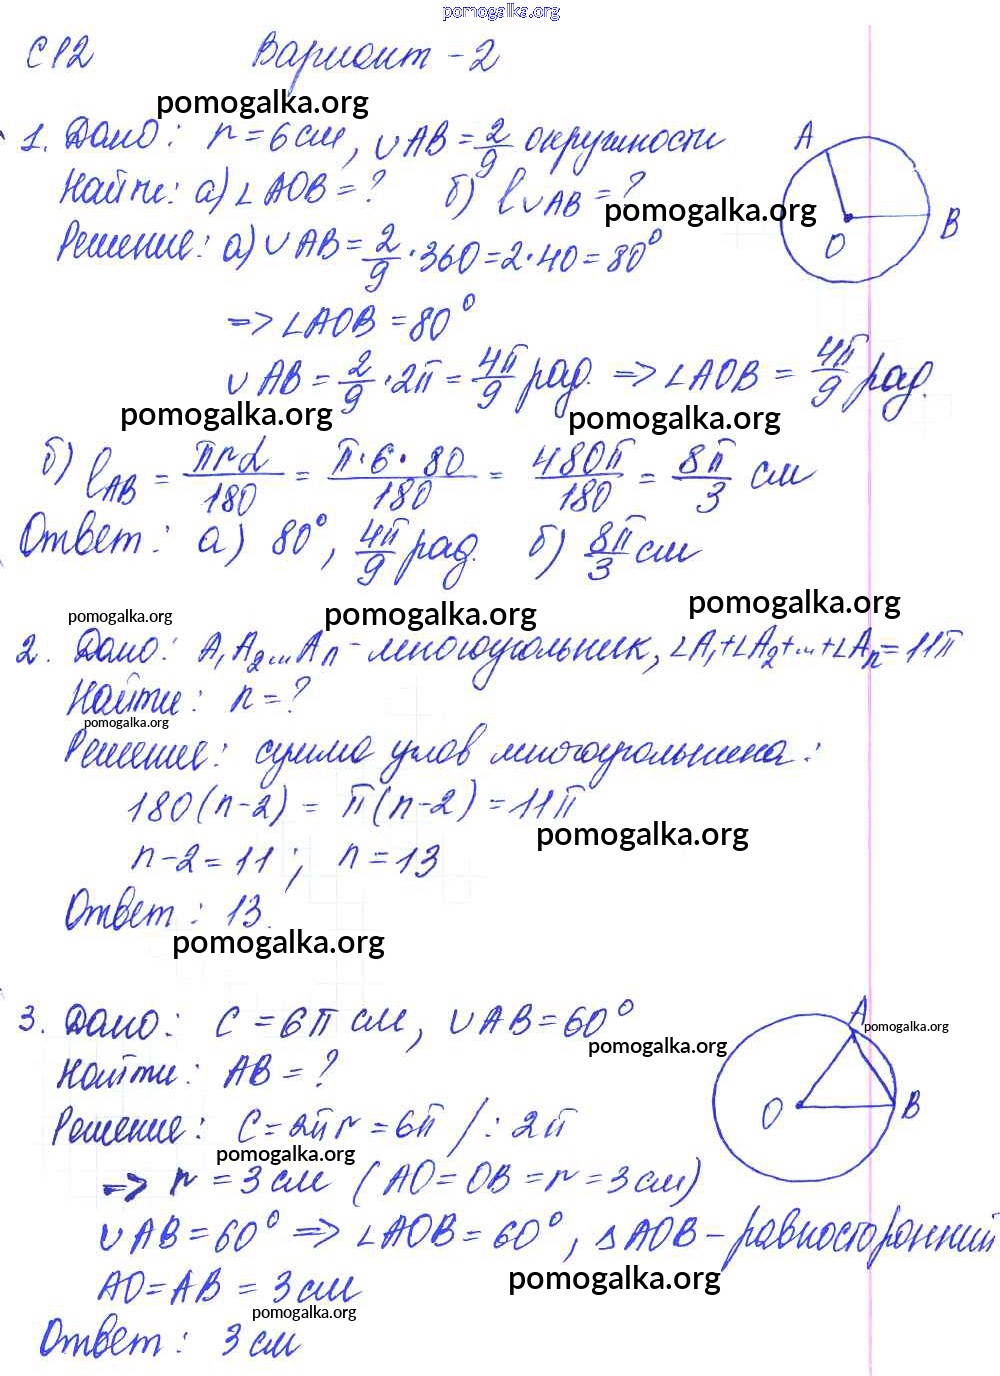 pomogalka.org
С12 Вариант - 2
pomogalka.org
1. Дано: r = 6 см, ∪AB = 2/9 окружности A
Найти: а) ∠AOB = ? б) l∪AB = ?
pomogalka.org
O B
Решение: а) ∪AB = 2/9 · 360 = 2 · 40 = 80°
=> ∠AOB = 80°
∪AB = 2/9 · 2π = 4π/9 рад. => ∠AOB = 4π/9 рад.
pomogalka.org pomogalka.org
б) lAB = πrα/180 = π·6·80/180 = 480π/180 = 8π/3 см
Ответ: а) 80°, 4π/9 рад. б) 8π/3 см
pomogalka.org pomogalka.org pomogalka.org
2. Дано: A₁A₂...An - многоугольник, ∠A₁+∠A₂+...+∠An = 11π
Найти: n = ?
pomogalka.org
Решение: сумма углов многоугольника:
180(n-2) = π(n-2) = 11π
pomogalka.org
n-2 = 11; n = 13
Ответ: 13.
pomogalka.org
3. Дано: C = 6π см, ∪AB = 60° A
pomogalka.org pomogalka.org
Найти: AB = ?
O B
Решение: C = 2πr = 6π /: 2π
pomogalka.org
=> r = 3 см (AO = OB = r = 3 см)
∪AB = 60° => ∠AOB = 60°, △AOB - равносторонний
AO = AB = 3 см
pomogalka.org
pomogalka.org
Ответ: 3 см